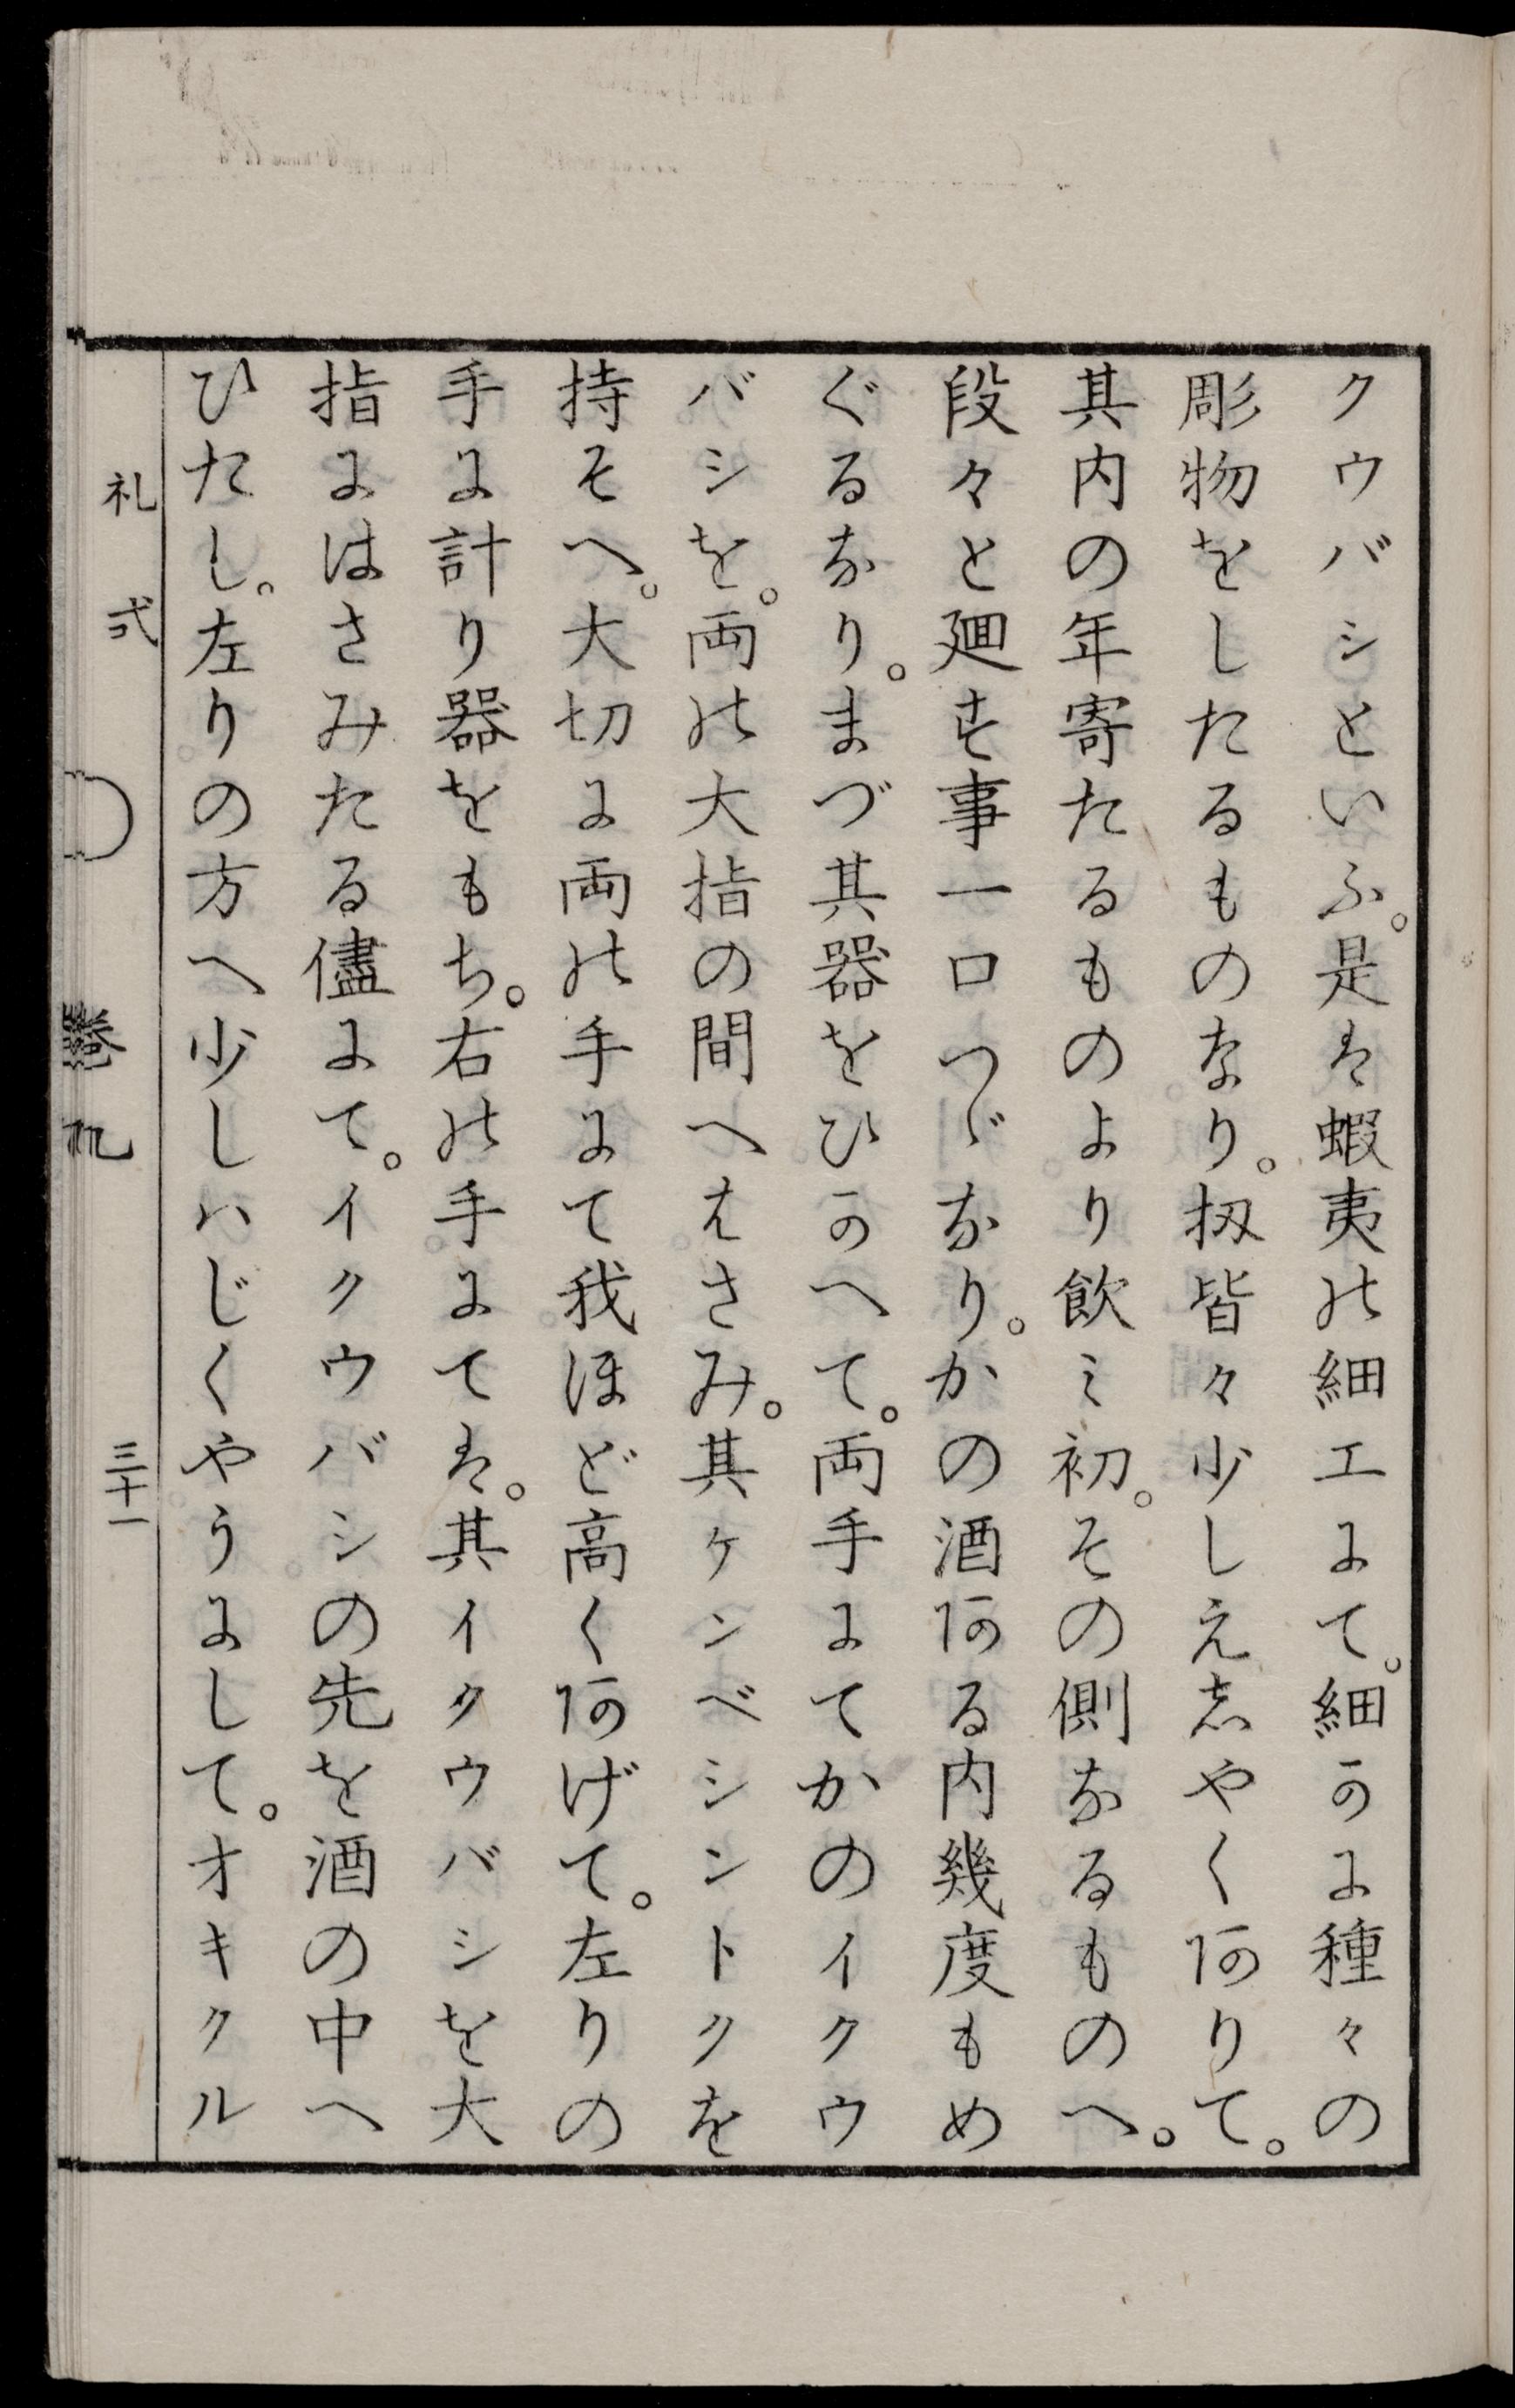 クウバシといふ。是は蝦夷の細工にて。細かに種々の
彫物をしたるものなり。扨皆々少しえしやくありて。
其内の年寄たるものより飲ミ初。その側なるものへ。
段々と廻す事一口つゞなり。かの酒ある内幾度もめ
ぐるなり。まづ其器をひかへて。両手にてかのイクウ
バシを。両の大指の間へはさみ。其ケンベシントクを
持そへ。大切に両の手にて我ほど高くあげて。左りの
手に計り器をもち。右の手にては。其イクウバシを大
指にはさみたる儘にて。イクウバシの先を酒の中へ
ひたし。左りの方へ少しハじくやうにして。オキクル
礼式　三十一